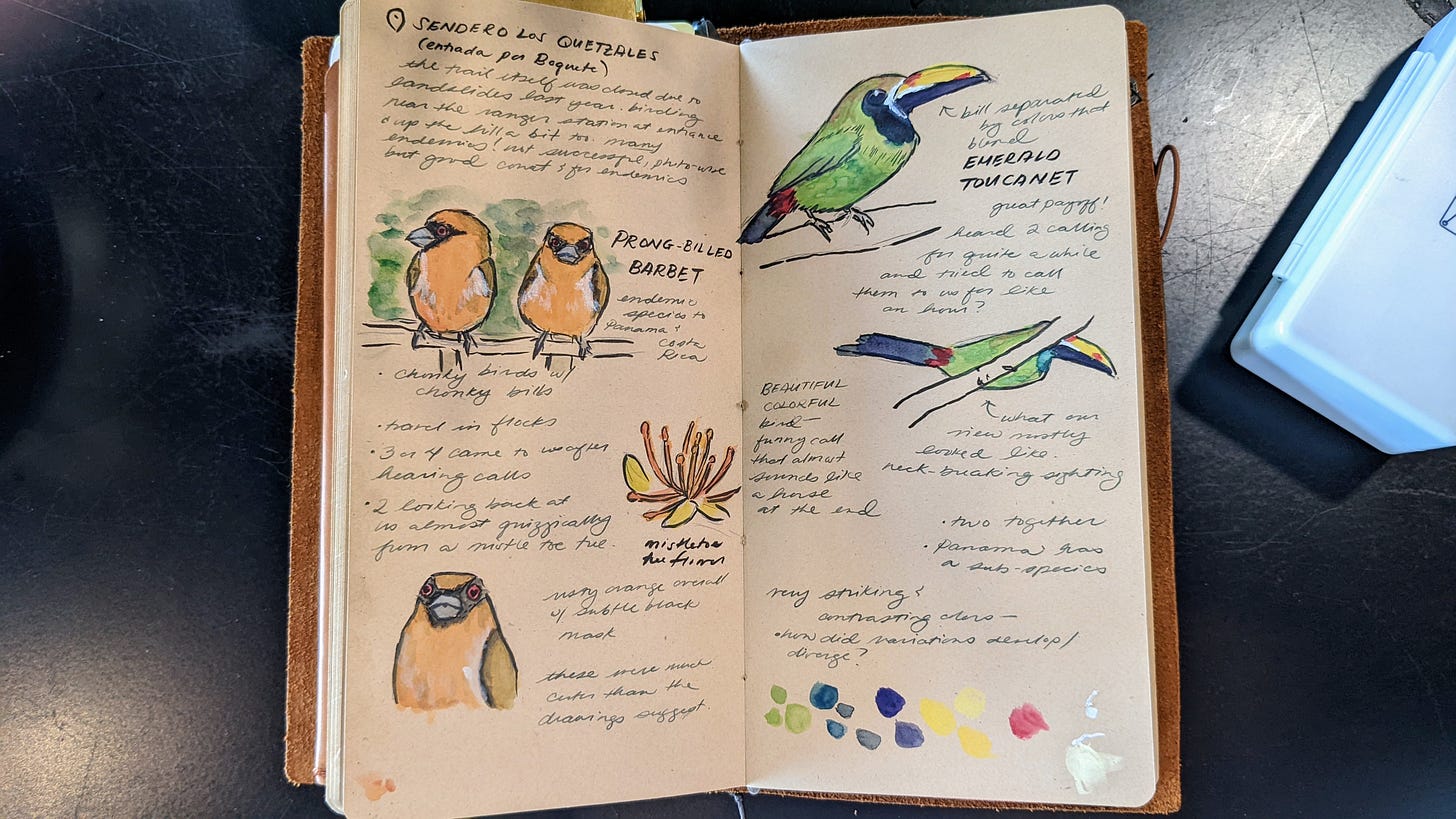 SENDERO LOS QUETZALES
(entrada por Boquete)
the trail itself was closed due to
landslides last year. birding
near the ranger station at entrance
& up the hill a bit too. many
endemics! not successful, photo-wise
but good const & for endemics
PRONG-BILLED
BARBET
endemic
species to
Panama &
Costa
Rica
• chonky birds w/
chonky bills
• travel in flocks
• 3 or 4 came to us after
hearing calls
• 2 looking back at
us almost quizzically
from a mistle toe tree.
mistletoe
tree flower
rusty orange overall
w/ subtle black
mask
these were much
cuter than the
drawings suggest.
bill separated
by colors that
blend
EMERALD
TOUCANET
great payoff!
heard 2 calling
for quite a while
and tried to call
them to us for like
an hour?
BEAUTIFUL
COLORFUL
bird—
funny call
that almost
sounds like
a horse
at the end
what our
view mostly
looked like.
neck-breaking sighting
• two together
• Panama has
a sub-species
very striking &
contrasting colors—
• how did variations develop/
diverge?